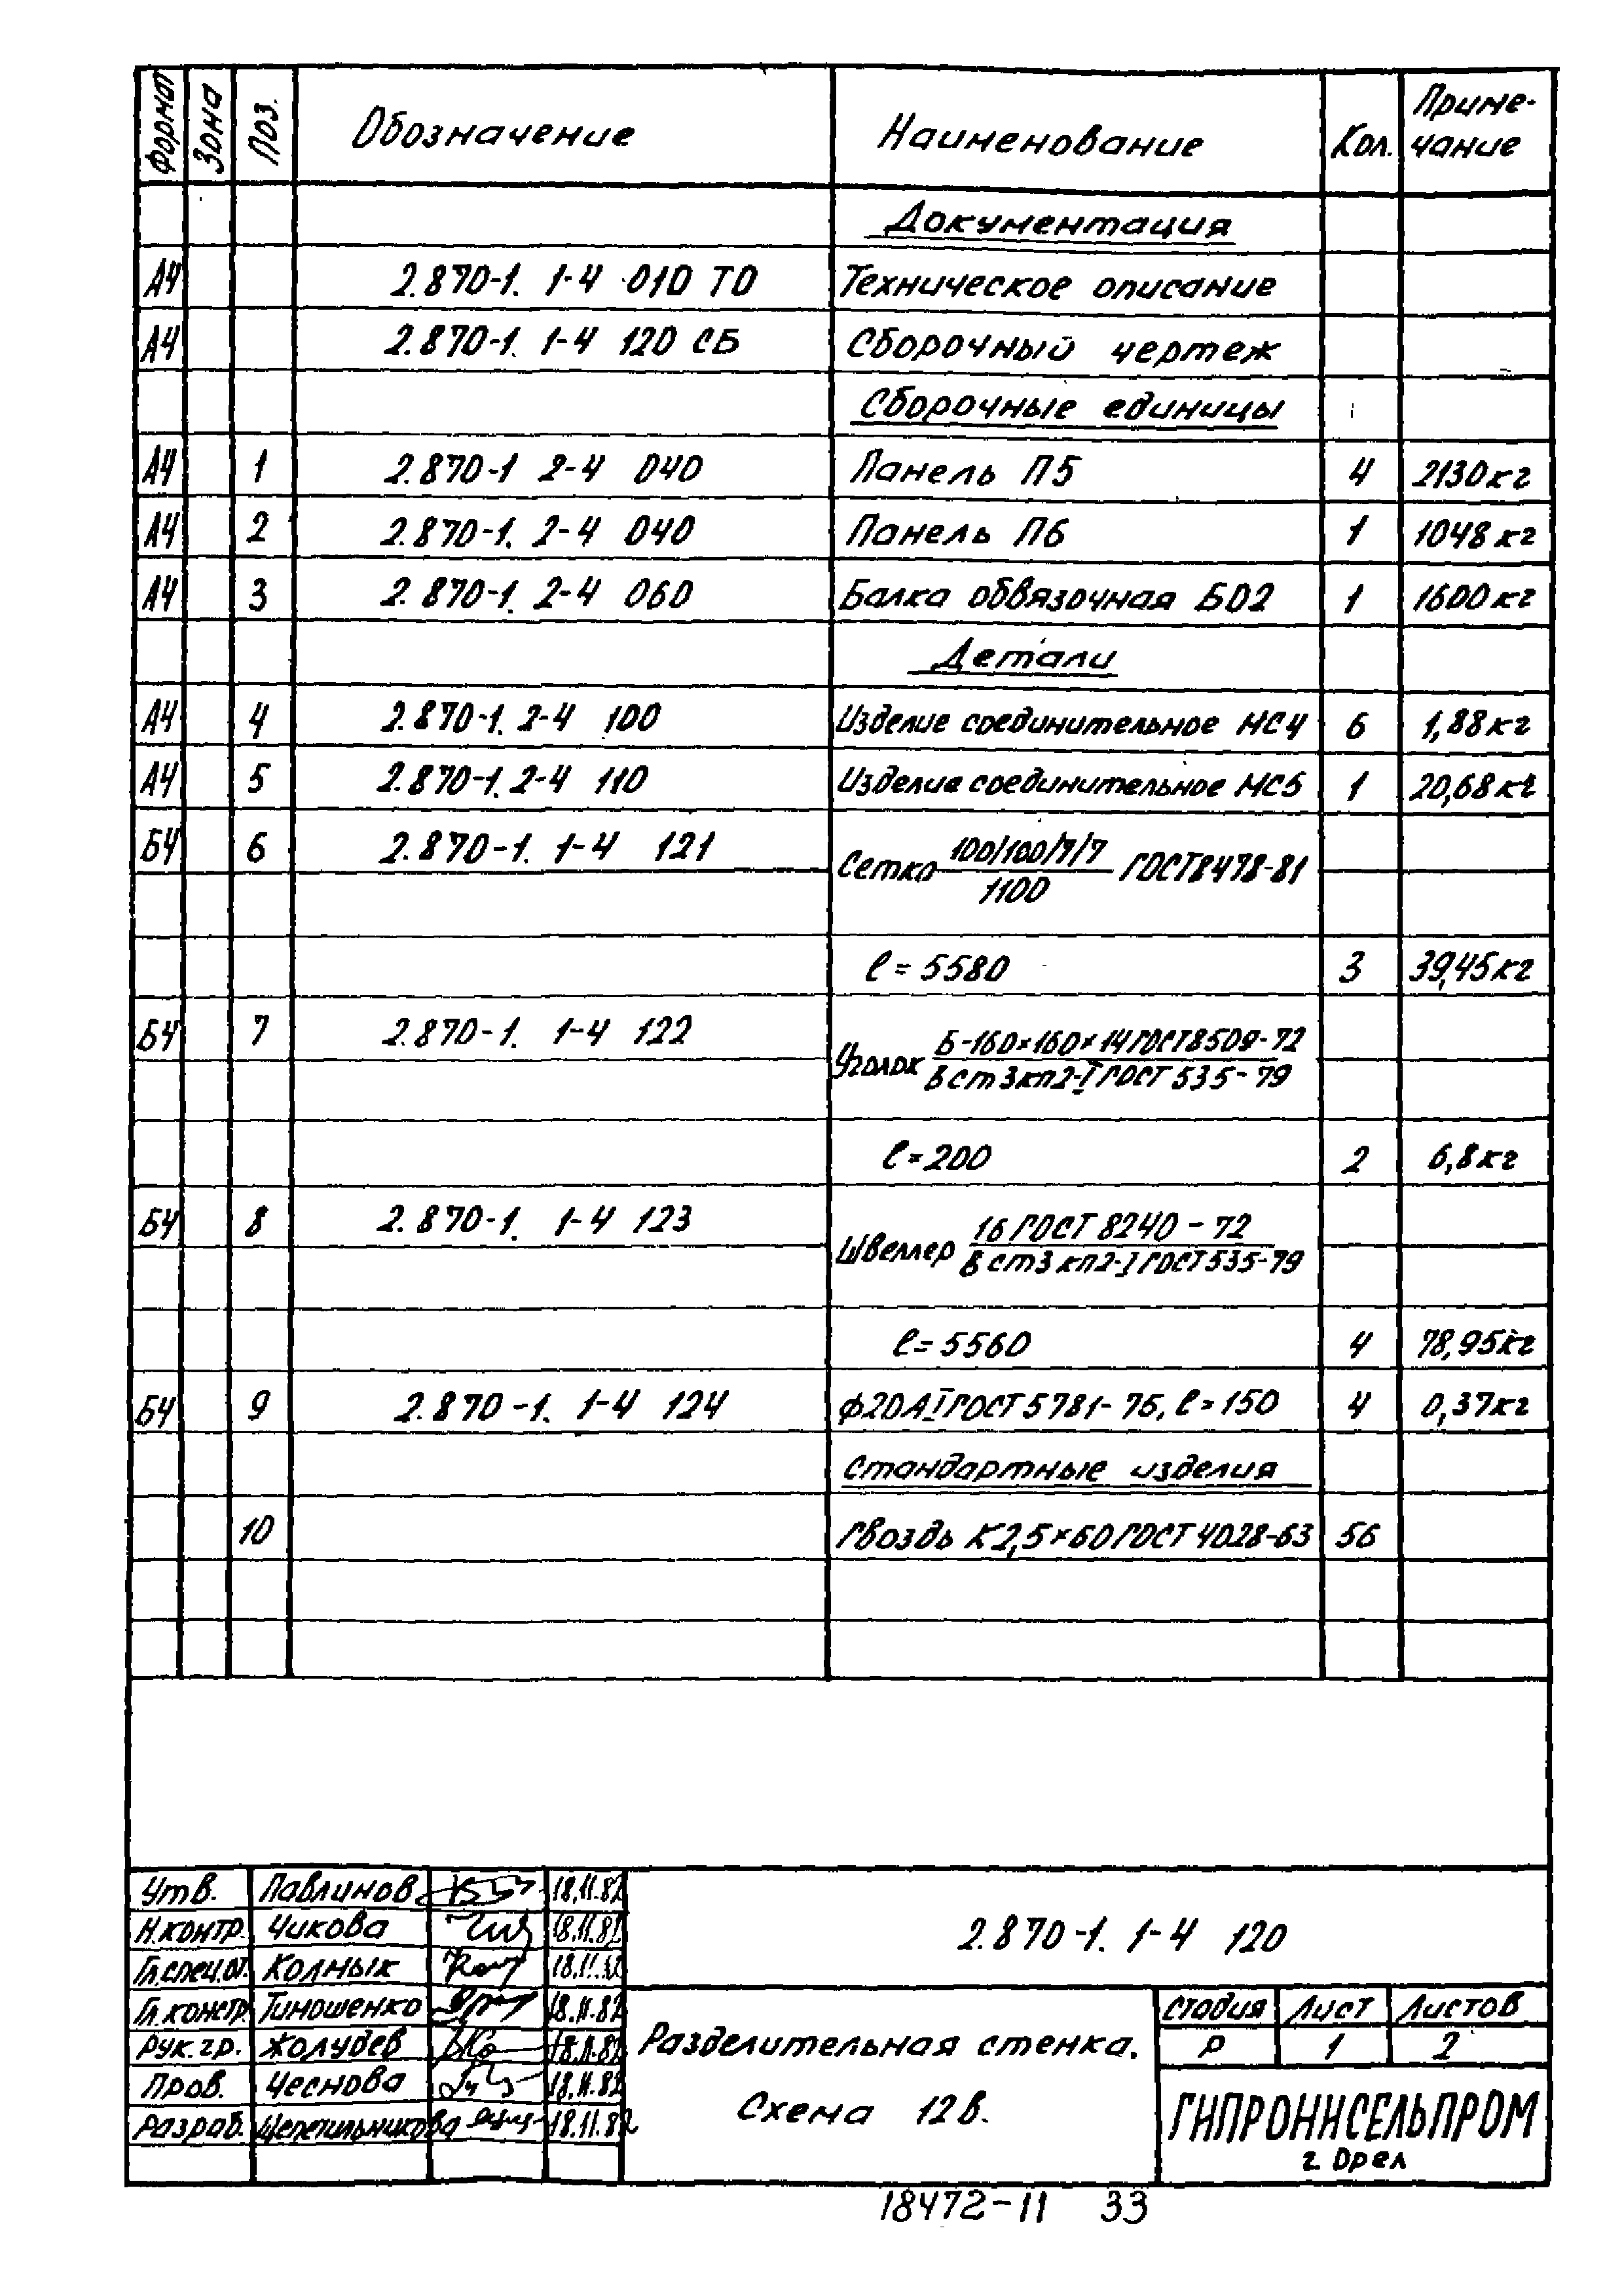 Формат Зона Поз. Обозначение Наименование Кол. Приме-
чание
Документация
А4 2.870-1. 1-4 010 ТО Техническое описание
А4 2.870-1. 1-4 120 СБ Сборочный чертеж
Сборочные единицы
А4 1 2.870-1 2-4 040 Панель П5 4 2130кг
А4 2 2.870-1. 2-4 040 Панель П6 1 1048кг
А4 3 2.870-1. 2-4 060 Балка обвязочная БО2 1 1600кг
Детали
А4 4 2.870-1. 2-4 100 Изделие соединительное МС4 6 1,88кг
А4 5 2.870-1. 2-4 110 Изделие соединительное МС5 1 20,68кг
БЧ 6 2.870-1. 1-4 121 Сетка 100/100/7/7 ГОСТ8478-81
1100
ℓ=5580 3 39,45кг
БЧ 7 2.870-1. 1-4 122 Уголок Б-160×160×14ГОСТ8509-72
Вст3кп2-I ГОСТ535-79
ℓ=200 2 6,8кг
БЧ 8 2.870-1. 1-4 123 Швеллер 16 ГОСТ 8240-72
Вст3кп2-I ГОСТ535-79
ℓ=5560 4 78,95кг
БЧ 9 2.870-1. 1-4 124 ф20АI ГОСТ 5781-75, ℓ=150 4 0,37кг
Стандартные изделия
10 Гвоздь К2,5×60 ГОСТ 4028-63 56
Утв. Павлинов 18.11.82
Н.контр. Чикова 18.11.82
Гл.спец.от. Колных 18.11.82
Гл.констр. Тиношенко 18.11.82
Рук.гр. Жолудев 18.11.82
Пров. Чеснова 18.11.82
Разраб. 18.11.82
2.870-1. 1-4 120
Разделительная стенка.
Схема 12в.
Стадия Лист Листов
Р 1 2
ГИПРОНИСЕЛЬПРОМ
г. Орел
18472-11 33